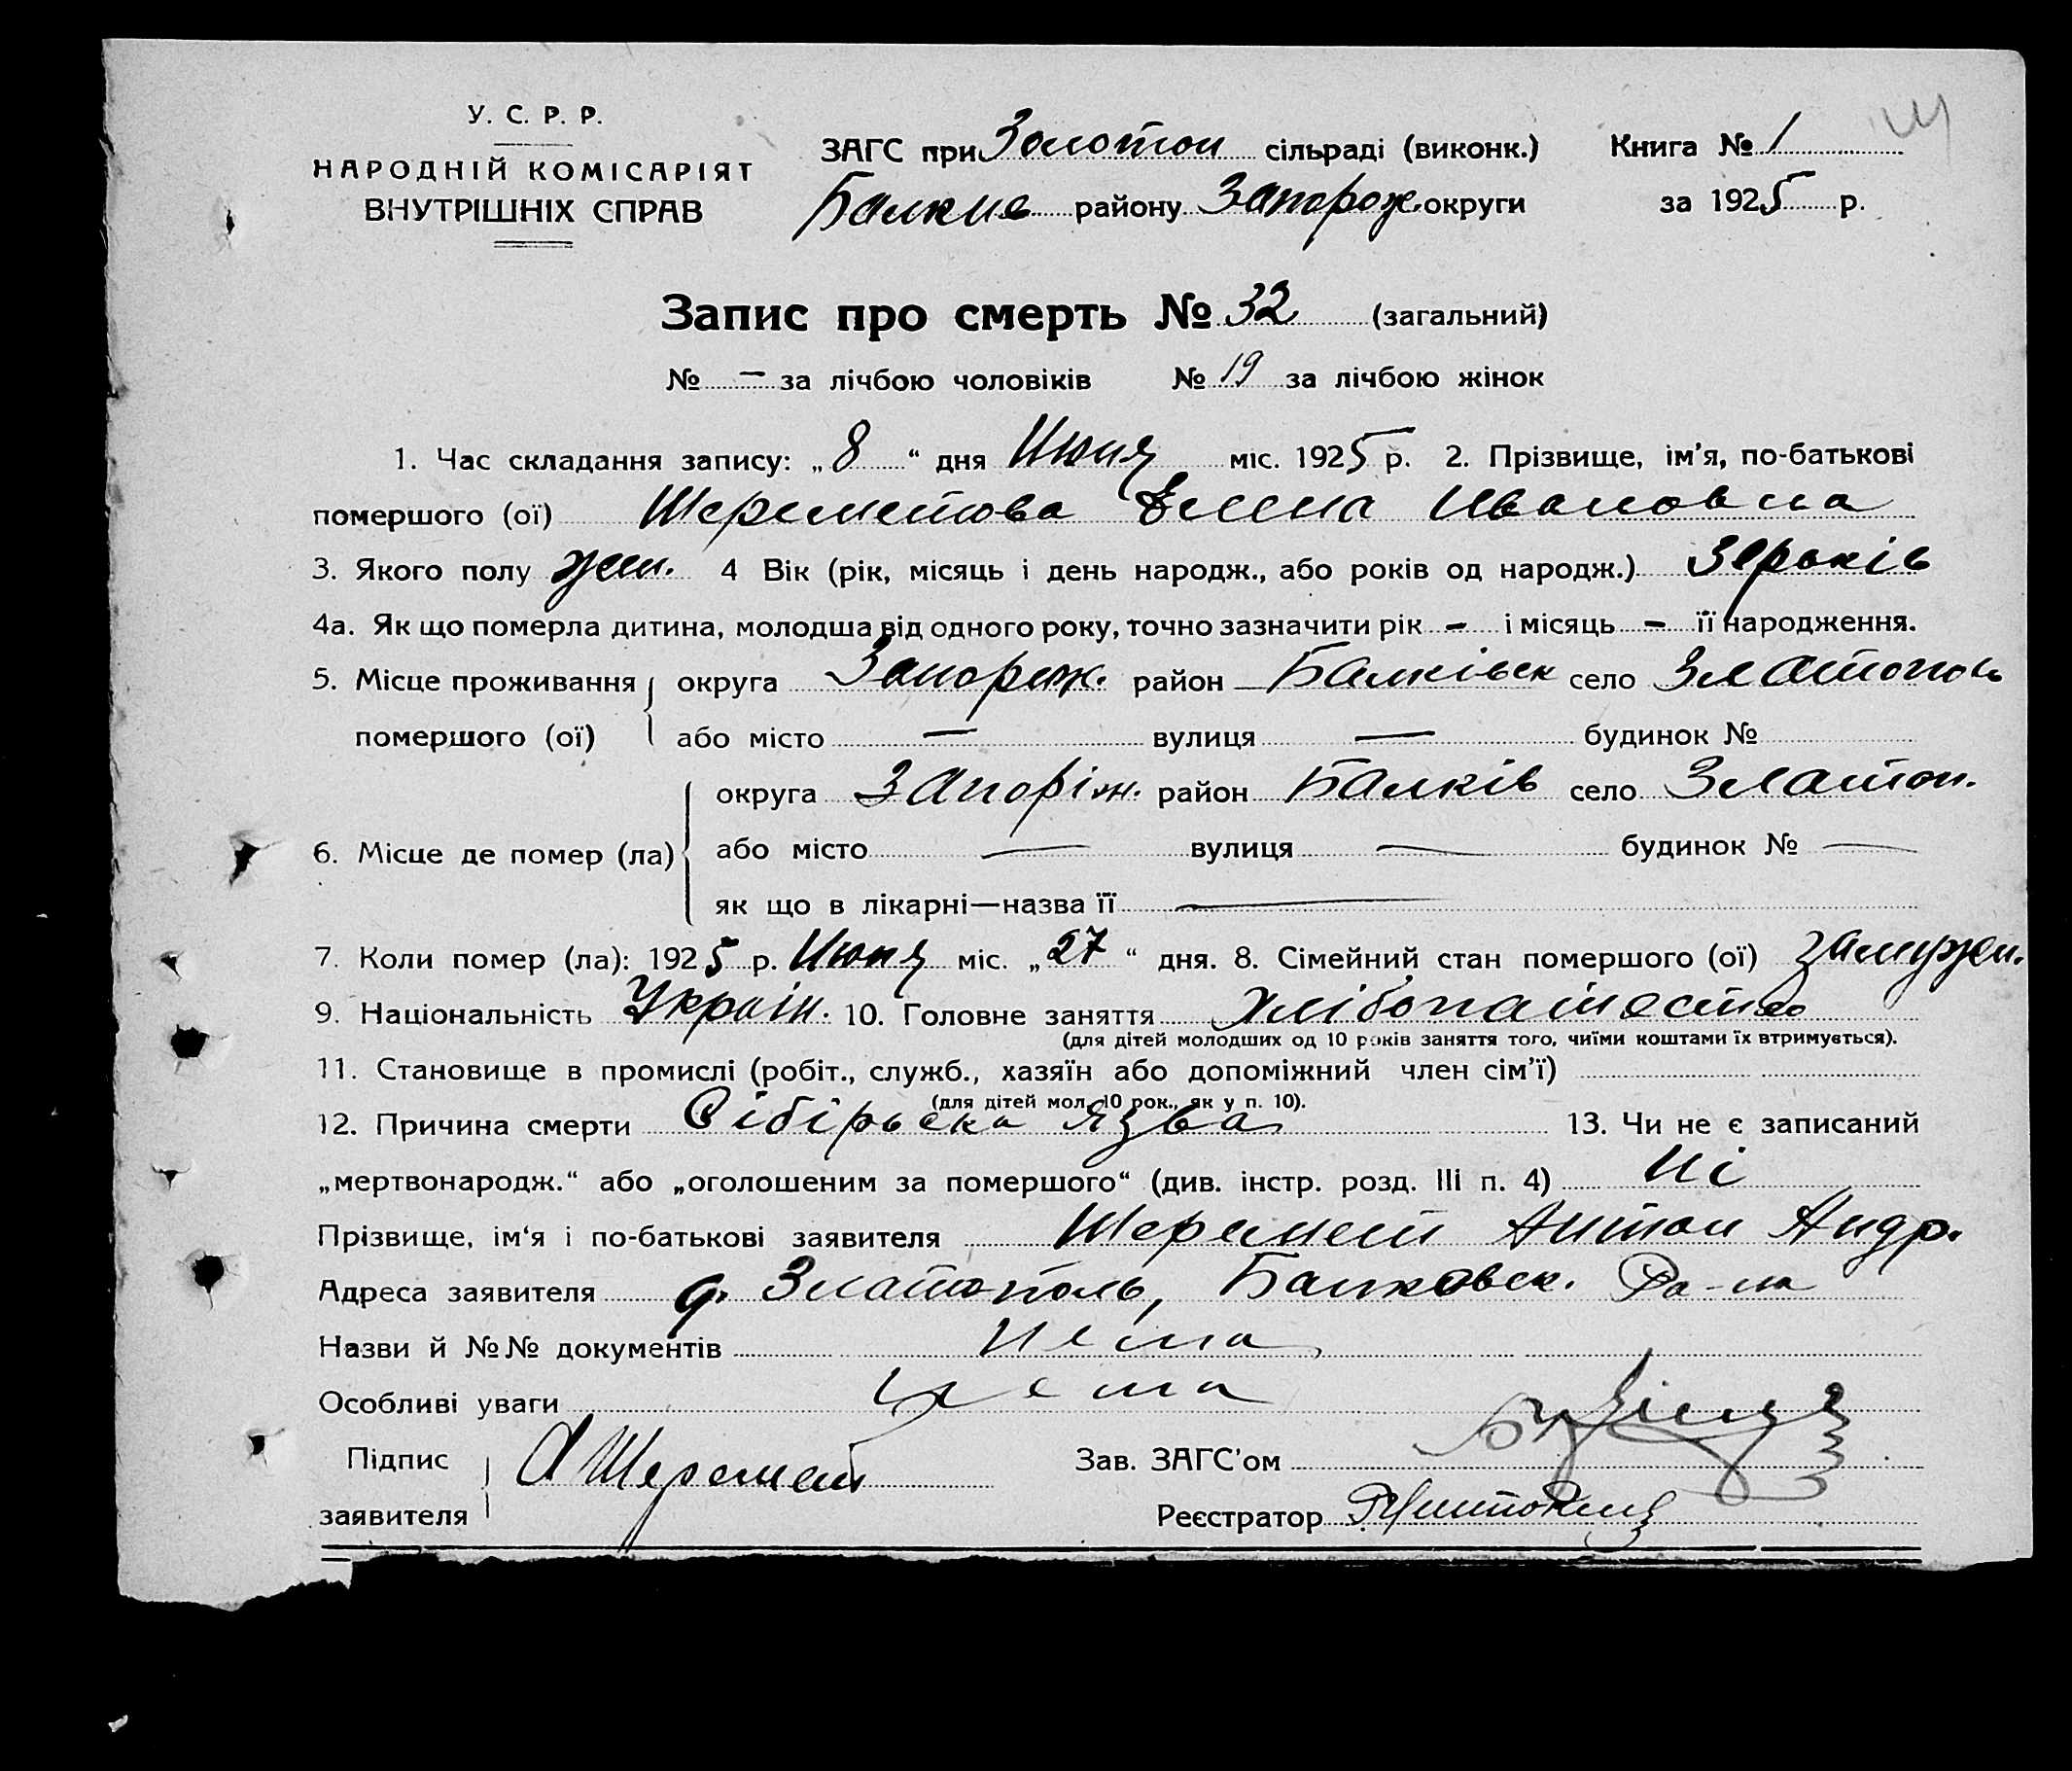 У. С. Р. Р.
НАРОДНІЙ КОМІСАРІЯТ
ВНУТРІШНІХ СПРАВ
ЗАГС при Золотоп сільраді (виконк.)
Балкив району Запорож округи
Книга № 1
за 1925 р.
Запис про смерть № 32 (загальний)
№ – за лічбою чоловіків № 19 за лічбою жінок
1. Час складання запису: „8“ дня Июня міс. 1925 р. 2. Прізвище, ім’я, по-батькові
помершого (ої) Шереметова Елена Ивановна
3. Якого полу жен. 4 Вік (рік, місяць і день народж., або років од народж.) років
4а. Як що померла дитина, молодша від одного року, точно зазначити рік – і місяць – її народження.
5. Місце проживання округа Запорож. район Балківск село Златополь
помершого (ої) або місто — вулиця — будинок №
округа Запоріж. район Балків село Златоп.
6. Місце де помер (ла) або місто — вулиця — будинок № —
як що в лікарні—назва її —
7. Коли помер (ла): 1925 р. Июня міс. „27“ дня. 8. Сімейний стан помершого (ої) замужен.
9. Національність Україн. 10. Головне заняття Хлібопашество
(для дітей молодших од 10 років заняття того, чиїми коштами їх втримується).
11. Становище в промислі (робіт., служб., хазяїн або допоміжний член сім’ї)
(для дітей мол. 10 рок., як у п. 10).
12. Причина смерти Сібірьска Язва 13. Чи не є записаний
„мертвонародж.“ або „оголошеним за помершого“ (див. інстр. розд. III п. 4) Ні
Прізвище, ім‘я і по-батькові заявителя Шеремет Антон Андр.
Адреса заявителя с. Златополь, Балковск. Ра-на
Назви й №№ документів Нема
Особливі уваги Нема
Підпис заявителя А Шеремет
Зав. ЗАГС’ом
Реєстратор